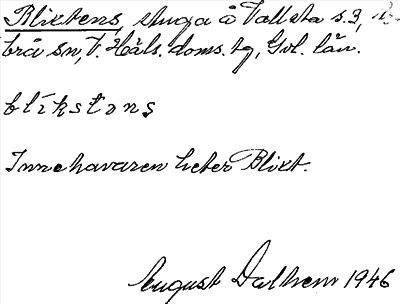 Blixtens, stuga å Vallsta s. 3, Ar-
brå sn, V. Häls. doms. tg, Gvl. län.
blíkstɔns
Innehavaren heter Blixt.
August Dalhem 1946